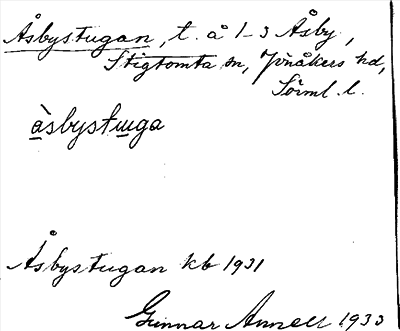 Åsbystugan, t. å 1-3 Åsby,
Stigtomta sn, Jönåkers hd,
Sörml. l.
àsbystuga
Åsbystugan kb 1931
Gunnar Annell 1933